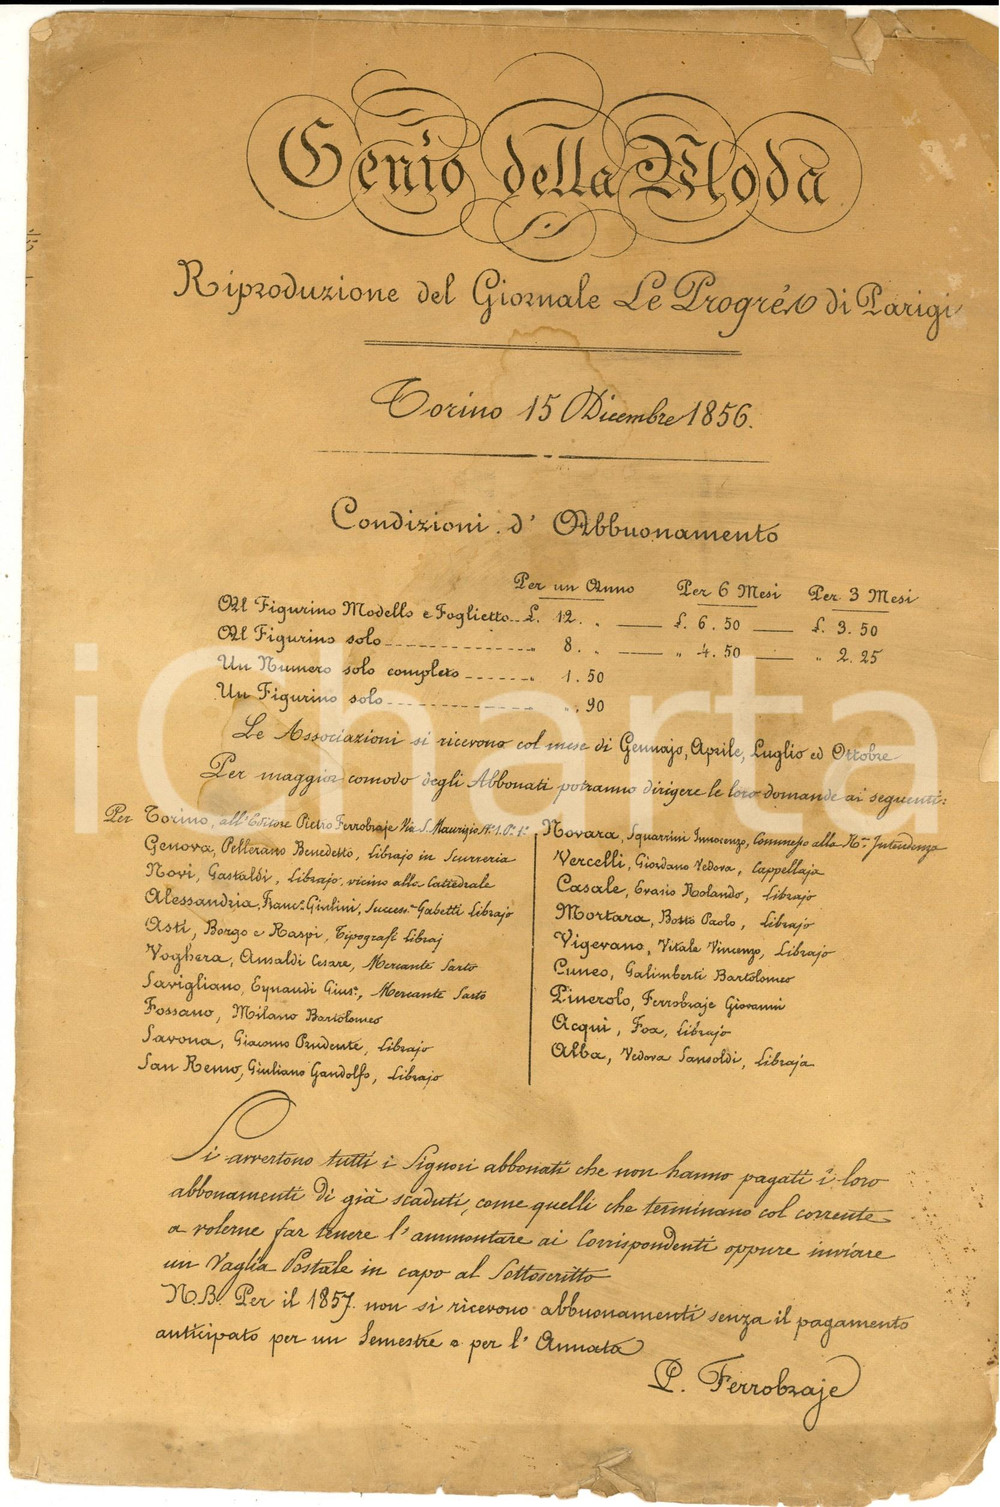 Genio della Moda
Riproduzione del Giornale Le Progrés di Parigi
Torino 15 Dicembre 1856.
Condizioni d' Abbuonamento
Per un Anno Per 6 Mesi Per 3 Mesi
Al Figurino Modello e Foglietto £. 12. „ — £. 6. 50 — £. 3. 50
Al Figurino solo „ 8. „ — „ 4. 50 — „ 2. 25
Un Numero solo completo „ 1. 50
Un Figurino solo „ „. 90
Le Associazioni si ricevono col mese di Gennajo, Aprile, Luglio ed Ottobre
Per maggior comodo degli Abbonati potranno dirigere le loro domande ai seguenti:
Per Torino, all'Editore Pietro Ferrobraje Via S. Maurizio N.° 1. P.° 1.°
Genova, Pellerano Benedetto, Librajo in Scurreria
Novi, Gastaldi, Librajo, vicino alla Cattedrale
Alessandria, Franc.° Giulini, Success.e Gabetti Librajo
Asti, Borgo e Raspi, Tipografi Libraj
Voghera, Ansaldi Cesare, Mercante Sarto
Savigliano, Eynaudi Gius.e, Mercante Sarto
Fossano, Milano Bartolomeo
Savona, Giacomo Prudente, Librajo
San Remo, Giuliano Gandolfo, Librajo
Novara, Squarrini Innocenzo, Commesso alla R.a Intendenza
Vercelli, Giordano Vedova, Cappellaja
Casale, Evasio Rolando, Librajo
Mortara, Botto Paolo, Librajo
Vigevano, Vitale Vincenzo, Librajo
Cuneo, Galimberti Bartolomeo
Pinerolo, Ferrobraje Giovanni
Acqui, Foa, Librajo
Alba, Vedova Sansoldi, Libraja
Si avvertono tutti i Signori abbonati che non hanno pagati i loro
abbonamenti di già scaduti, come quelli che terminano col corrente
a volerne far tenere l'ammontare ai Corrispondenti oppure inviare
un Vaglia Postale in capo al Sottoscritto
N.B. Per il 1857. non si ricevono abbuonamenti senza il pagamento
anticipato per un Semestre o per l' Annata
P. Ferrobraje
iCharta